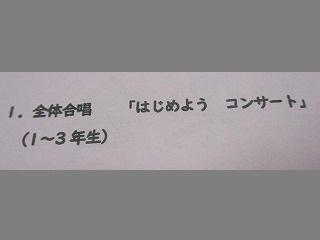 1．全体合唱　「はじめよう　コンサート」
（1～3年生）